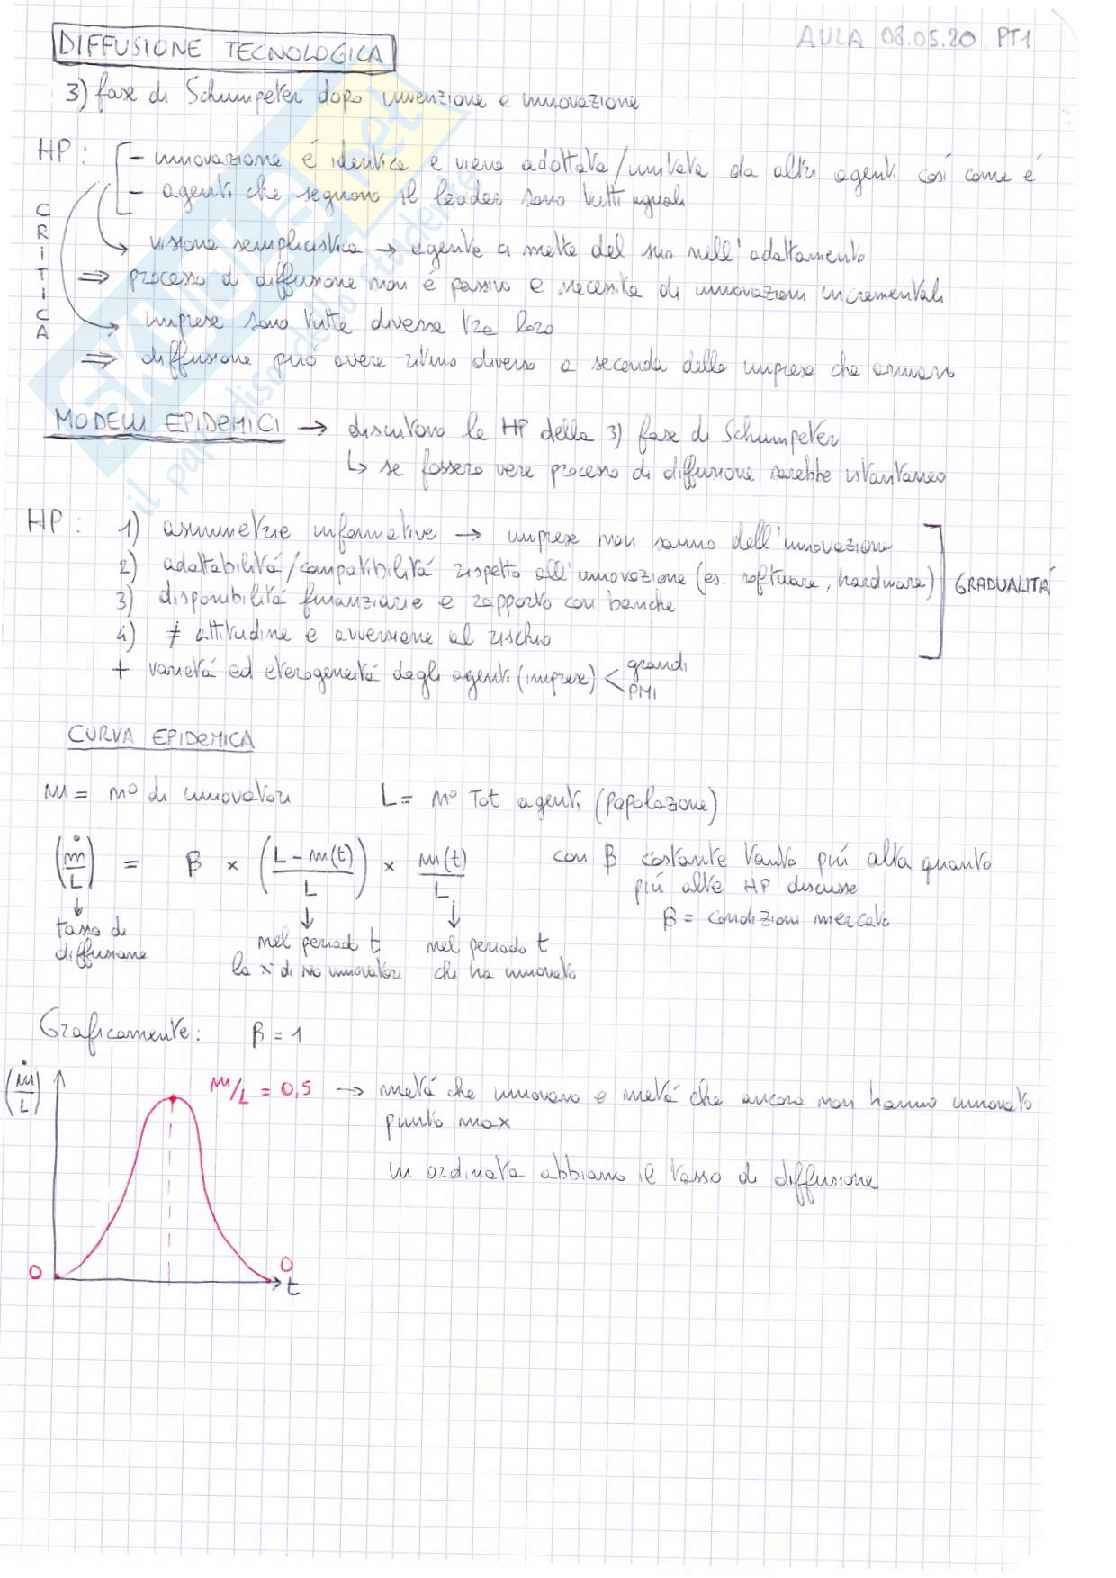 AULA 08.05.20 PT1
DIFFUSIONE TECNOLOGICA
3) fase di Schumpeter dopo invenzione e innovazione
HP: - innovazione é identica e viene adottata/imitata da altri agenti così come é
- agenti che seguono il leader sono tutti uguali
CRITICA
visione semplicistica → agente a mette del suo nell'adattamento
⇒ processo di diffusione non é passivo e necessita di innovazioni incrementali
imprese sono tutte diverse tra loro
⇒ diffusione può avere ritmo diverso a seconda delle imprese che
MODELLI EPIDEMICI → discutono le HP della 3) fase di Schumpeter
↳ se fossero vere processo di diffusione sarebbe istantaneo
HP: 1) asimmetrie informative → imprese non sanno dell'innovazione
2) adattabilitá/compatibilitá rispetto all'innovazione (es. software, hardware)
3) disponibilitá finanziarie e rapporto con banche
4) ≠ attitudine e avversione al rischio
GRADUALITÁ
+ varietá ed eterogeneitá degli agenti (imprese) < grandi
PMI
CURVA EPIDEMICA
m = n° di innovatori L = n° Tot agenti (popolazione)
(ṁ/L) = β × ((L - m(t))/L) × m(t)/L con β costante tanto più alta quanto
più alte HP discusse
β = condizioni mercato
↓ tasso di diffusione
↓ nel periodo t
la % di no innovatori
↓ nel periodo t
che ha innovato
Graficamente: β = 1
(ṁ/L)
m/L = 0,5 → metá che innovano e metá che ancora non hanno innovato
punto max
in ordinata abbiamo il tasso di diffusione
0
0
t
SKUOLA.net
il paradiso dello studente